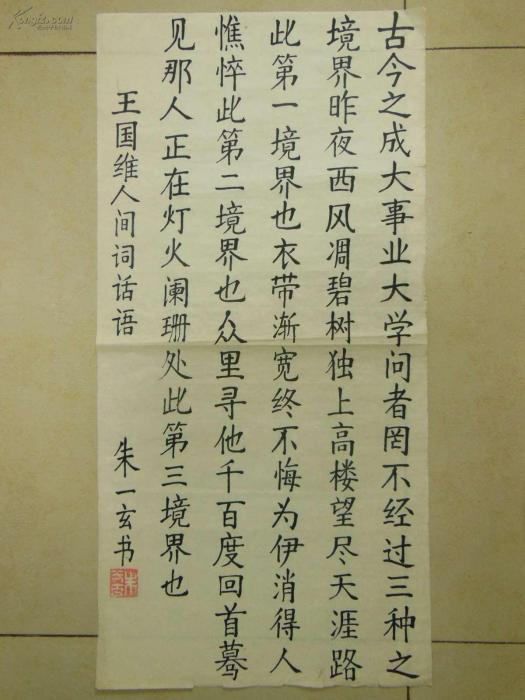 古今之成大事业大学问者罔不经过三种之
境界昨夜西风凋碧树独上高楼望尽天涯路
此第一境界也衣带渐宽终不悔为伊消得人
憔悴此第二境界也众里寻他千百度回首蓦
见那人正在灯火阑珊处此第三境界也
王国维人间词话语
朱一玄书